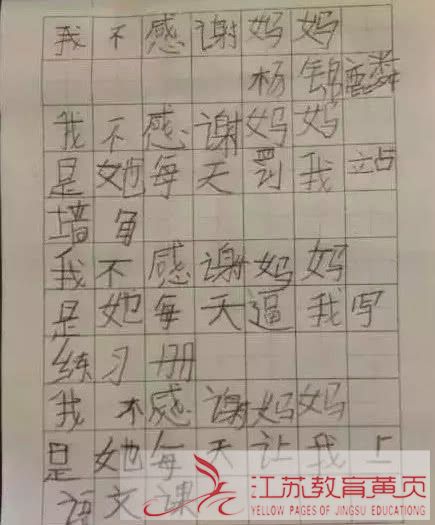 我不感谢妈妈
杨锦
我不感谢妈妈
是她每天罚我站
墙角
我不感谢妈妈
是她每天逼我写
练习册
我不感谢妈妈
是她每天让我上
语文课
江苏教育黄页
YELLOW PAGES OF JINGSU EDUCATIONG